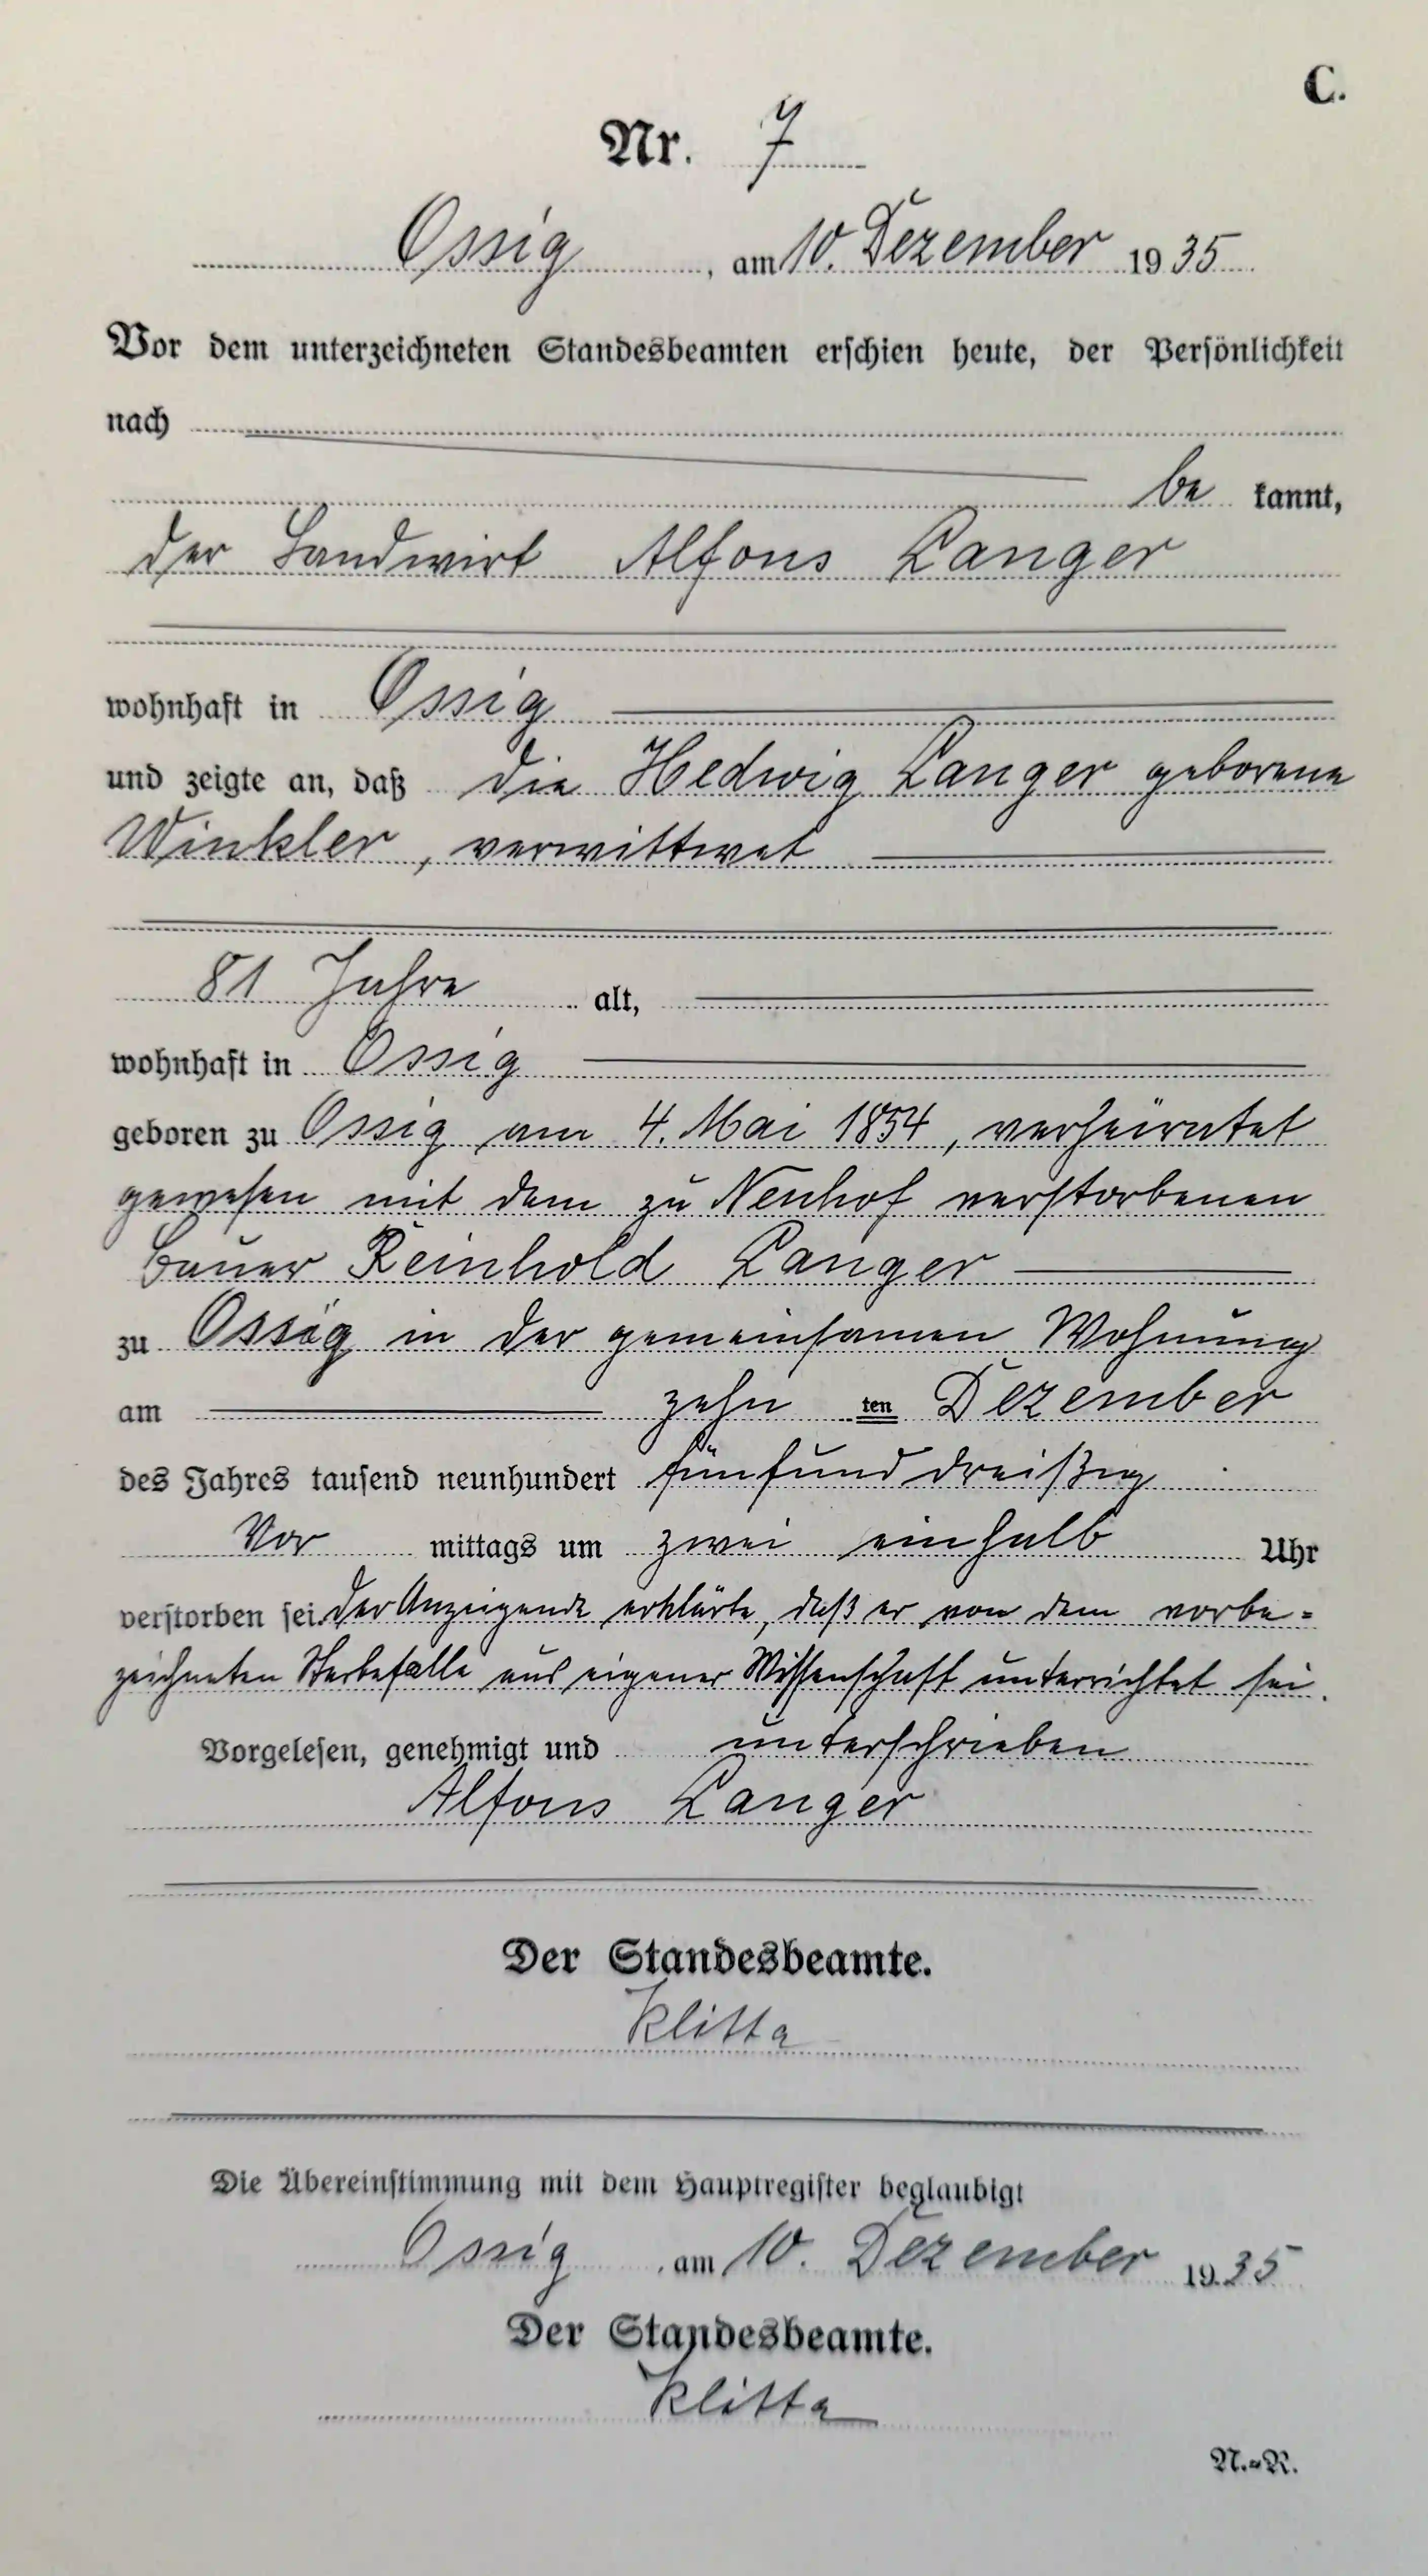 C.
Nr. 7
Ossig, am 10. Dezember 1935
Vor dem unterzeichneten Standesbeamten erschien heute, der Persönlichkeit
nach
be kannt,
der Landwirt Alfons Langer
wohnhaft in Ossig
und zeigte an, daß die Hedwig Langer geborene
Winkler, verwittwet
81 Jahre alt,
wohnhaft in Ossig
geboren zu Ossig am 4. Mai 1854, verheiratet
gewesen mit dem zu Neuhof verstorbenen
Bauer Reinhold Langer
zu Ossig in der gemeinsamen Wohnung
am zehn ten Dezember
des Jahres tausend neunhundert fünfunddreißig
Vor mittags um zwei einhalb Uhr
verstorben sei. Der Anzeigende erklärte, daß er von dem vorbe=
zeichneten Sterbefalle aus eigener Wissenschaft unterrichtet sei.
Vorgelesen, genehmigt und unterschrieben
Alfons Langer
Der Standesbeamte.
Klitta
Die Übereinstimmung mit dem Hauptregister beglaubigt
Ossig, am 10. Dezember 1935
Der Standesbeamte.
Klitta
N.=R.